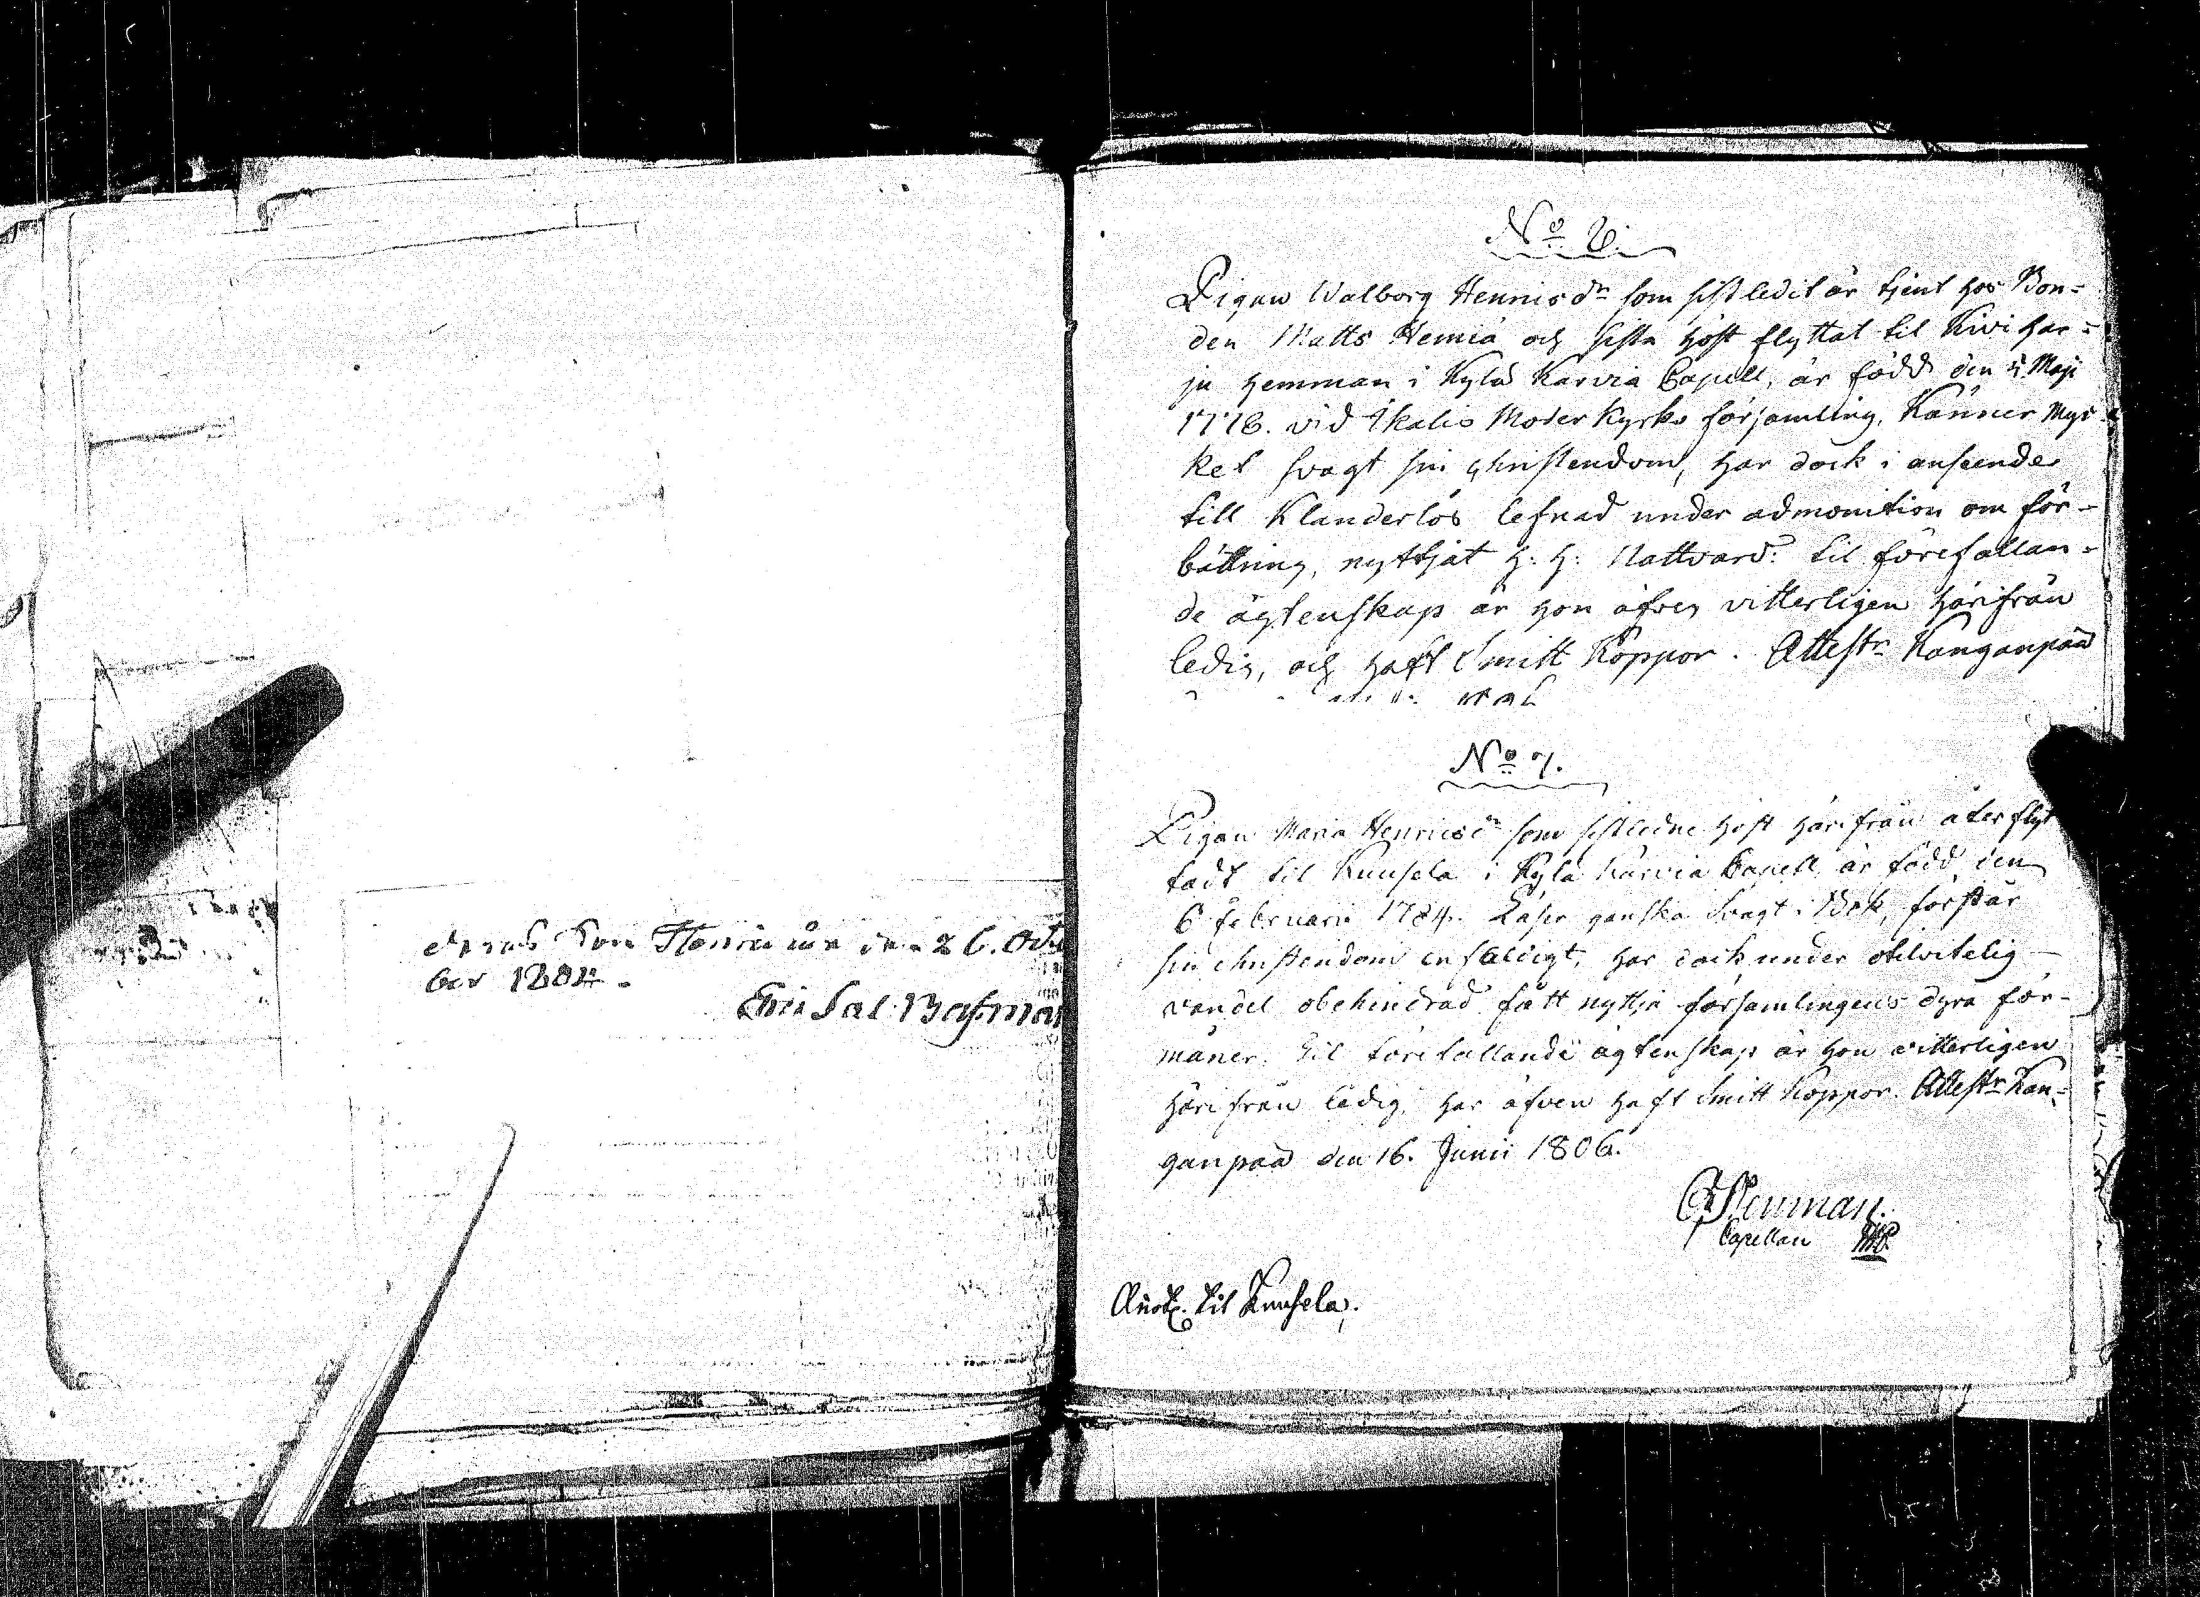 Son Henric den 26. Octo
ber 180
Eric Joh: Bergman
N:o 6.
Pigan Walborg Henricsdr som sistledit år tjent hos Bon=
den Matts Hemiä och sista höst flyttat til Kivihar=
ju hemman i Kylä Karvia Capell, är född den 4 Maji
1776. vid Ikalis Moder kyrko församling. Känner myc=
ket svagt sin Christendom, har dock i anseende
till klanderlös lefnad under admonition om för=
bättring, nyttjat H: H: Nattvard: til förefallan=
de ägtenskap är hon äfven vitterligen härifrån
ledig, och haft Smitt Koppor. Attestr Kanganpää
N:o 7.
Pigan Maria Henricsdr som sistledne höst härifrån återflyt
tadt til Kuusela i Kylä Karvia Capell är född den
6 Februarii 1784. Läser ganska Svagt i Bok, förstår
sin christendom enfaldigt, har dock under otelvitelig
vandel obehindrad fått nyttja församlingens dyra för=
måner. Til förefallande ägtenskap är hon vitterligen
härifrån ledig, har äfven haft Smitt Koppor. Attestr Kan=
ganpää den 16. Junii 1806.
Capellan
til Kuusela.